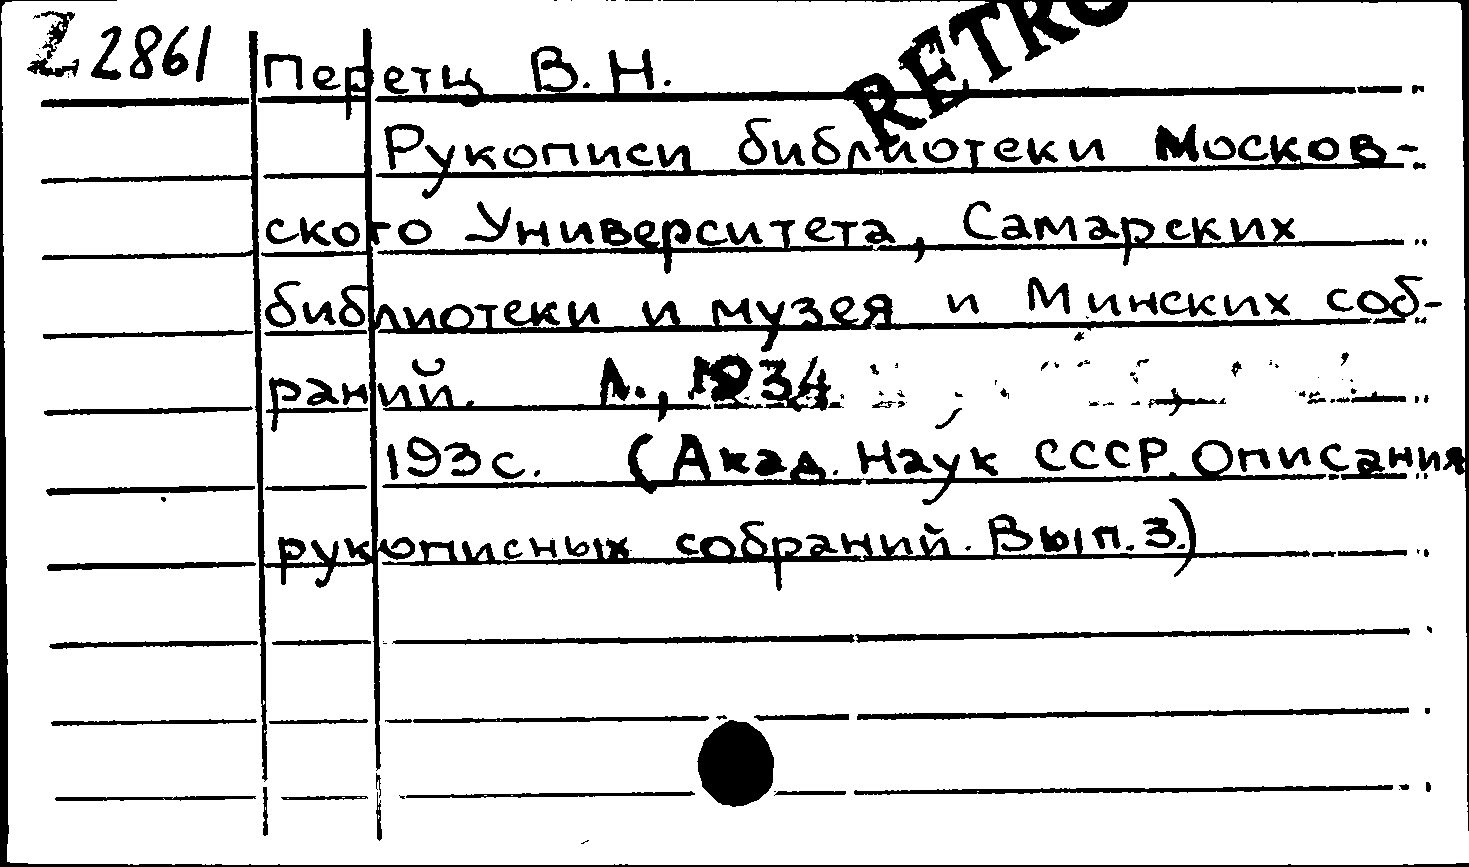 Z 2861 Перетц В. Н.
RETRO
Рукописи библиотеки Москов-
ского Университета, Самарских
библиотеки и музея и Минских соб-
раний. Л., 1934
193 с. (Акад. Наук СССР. Описания
рукописных собраний. Вып. 3.)